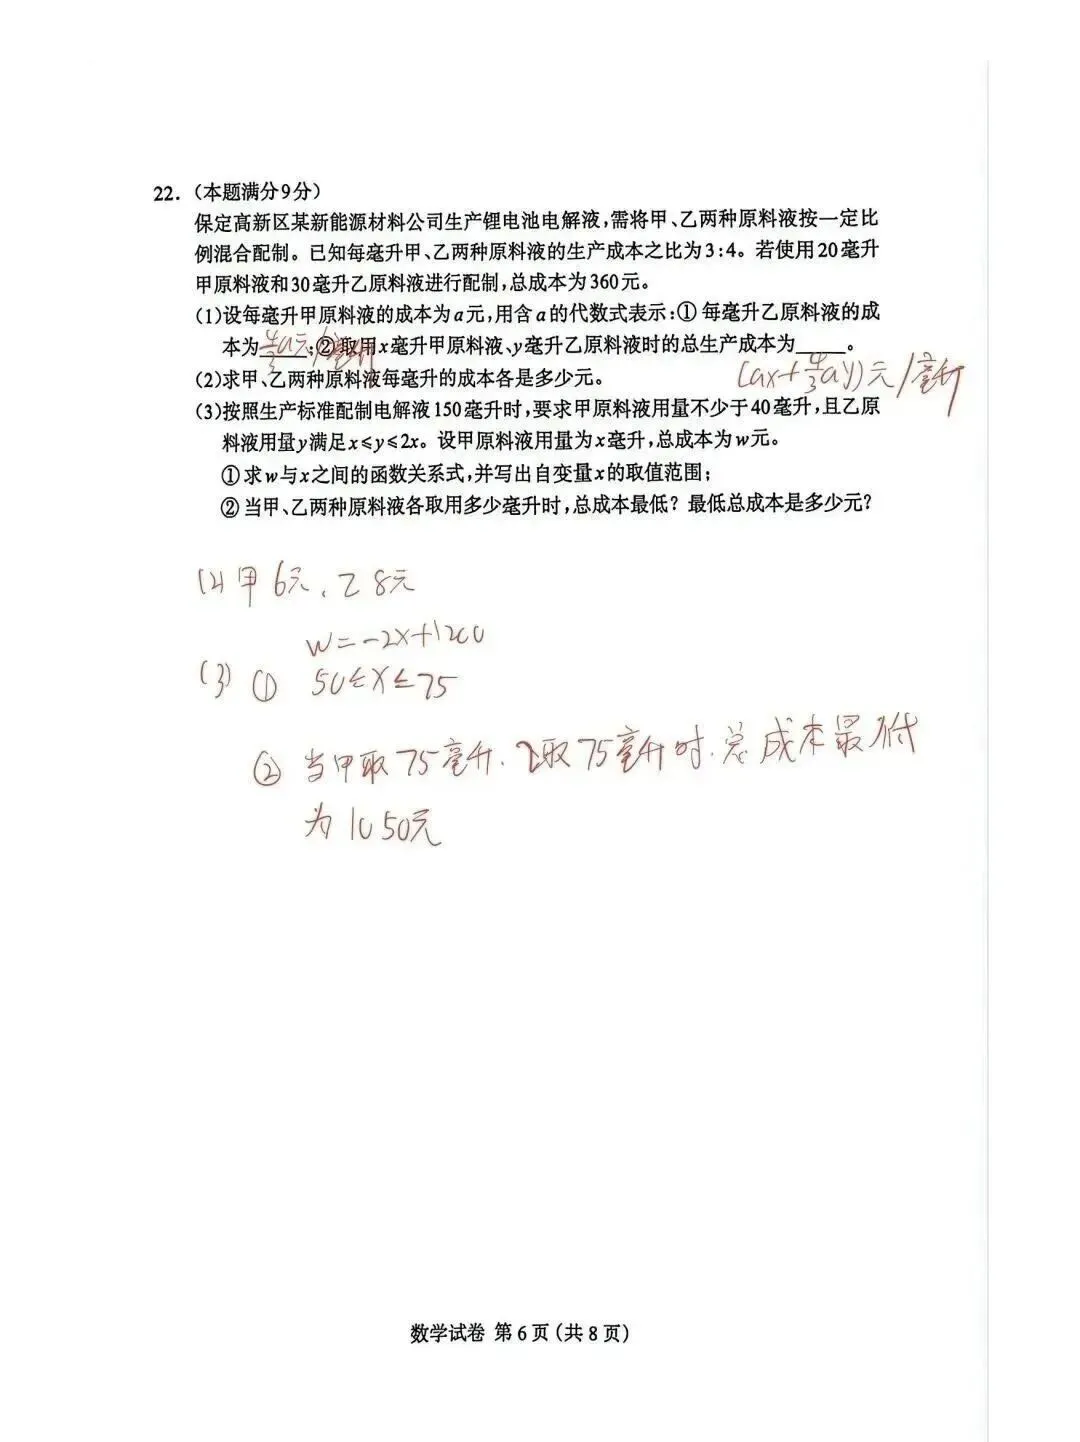 22.(本题满分9分)
保定高新区某新能源材料公司生产锂电池电解液,需将甲、乙两种原料液按一定比
例混合配制。已知每毫升甲、乙两种原料液的生产成本之比为3:4。若使用20毫升
甲原料液和30毫升乙原料液进行配制,总成本为360元。
(1)设每毫升甲原料液的成本为a元,用含a的代数式表示:①每毫升乙原料液的成
本为 4/3a元/毫升 ;②取用x毫升甲原料液、y毫升乙原料液时的总生产成本为_____。
(ax+4/3ay)元/毫升
(2)求甲、乙两种原料液每毫升的成本各是多少元。
(3)按照生产标准配制电解液150毫升时,要求甲原料液用量不少于40毫升,且乙原
料液用量y满足x≤y≤2x。设甲原料液用量为x毫升,总成本为w元。
①求w与x之间的函数关系式,并写出自变量x的取值范围;
②当甲、乙两种原料液各取用多少毫升时,总成本最低?最低总成本是多少元?
(2)甲6元、乙8元
w=-2x+1200
(3)① 50≤x≤75
② 当甲取75毫升、乙取75毫升时、总成本最低
为1050元
数学试卷 第6页(共8页)